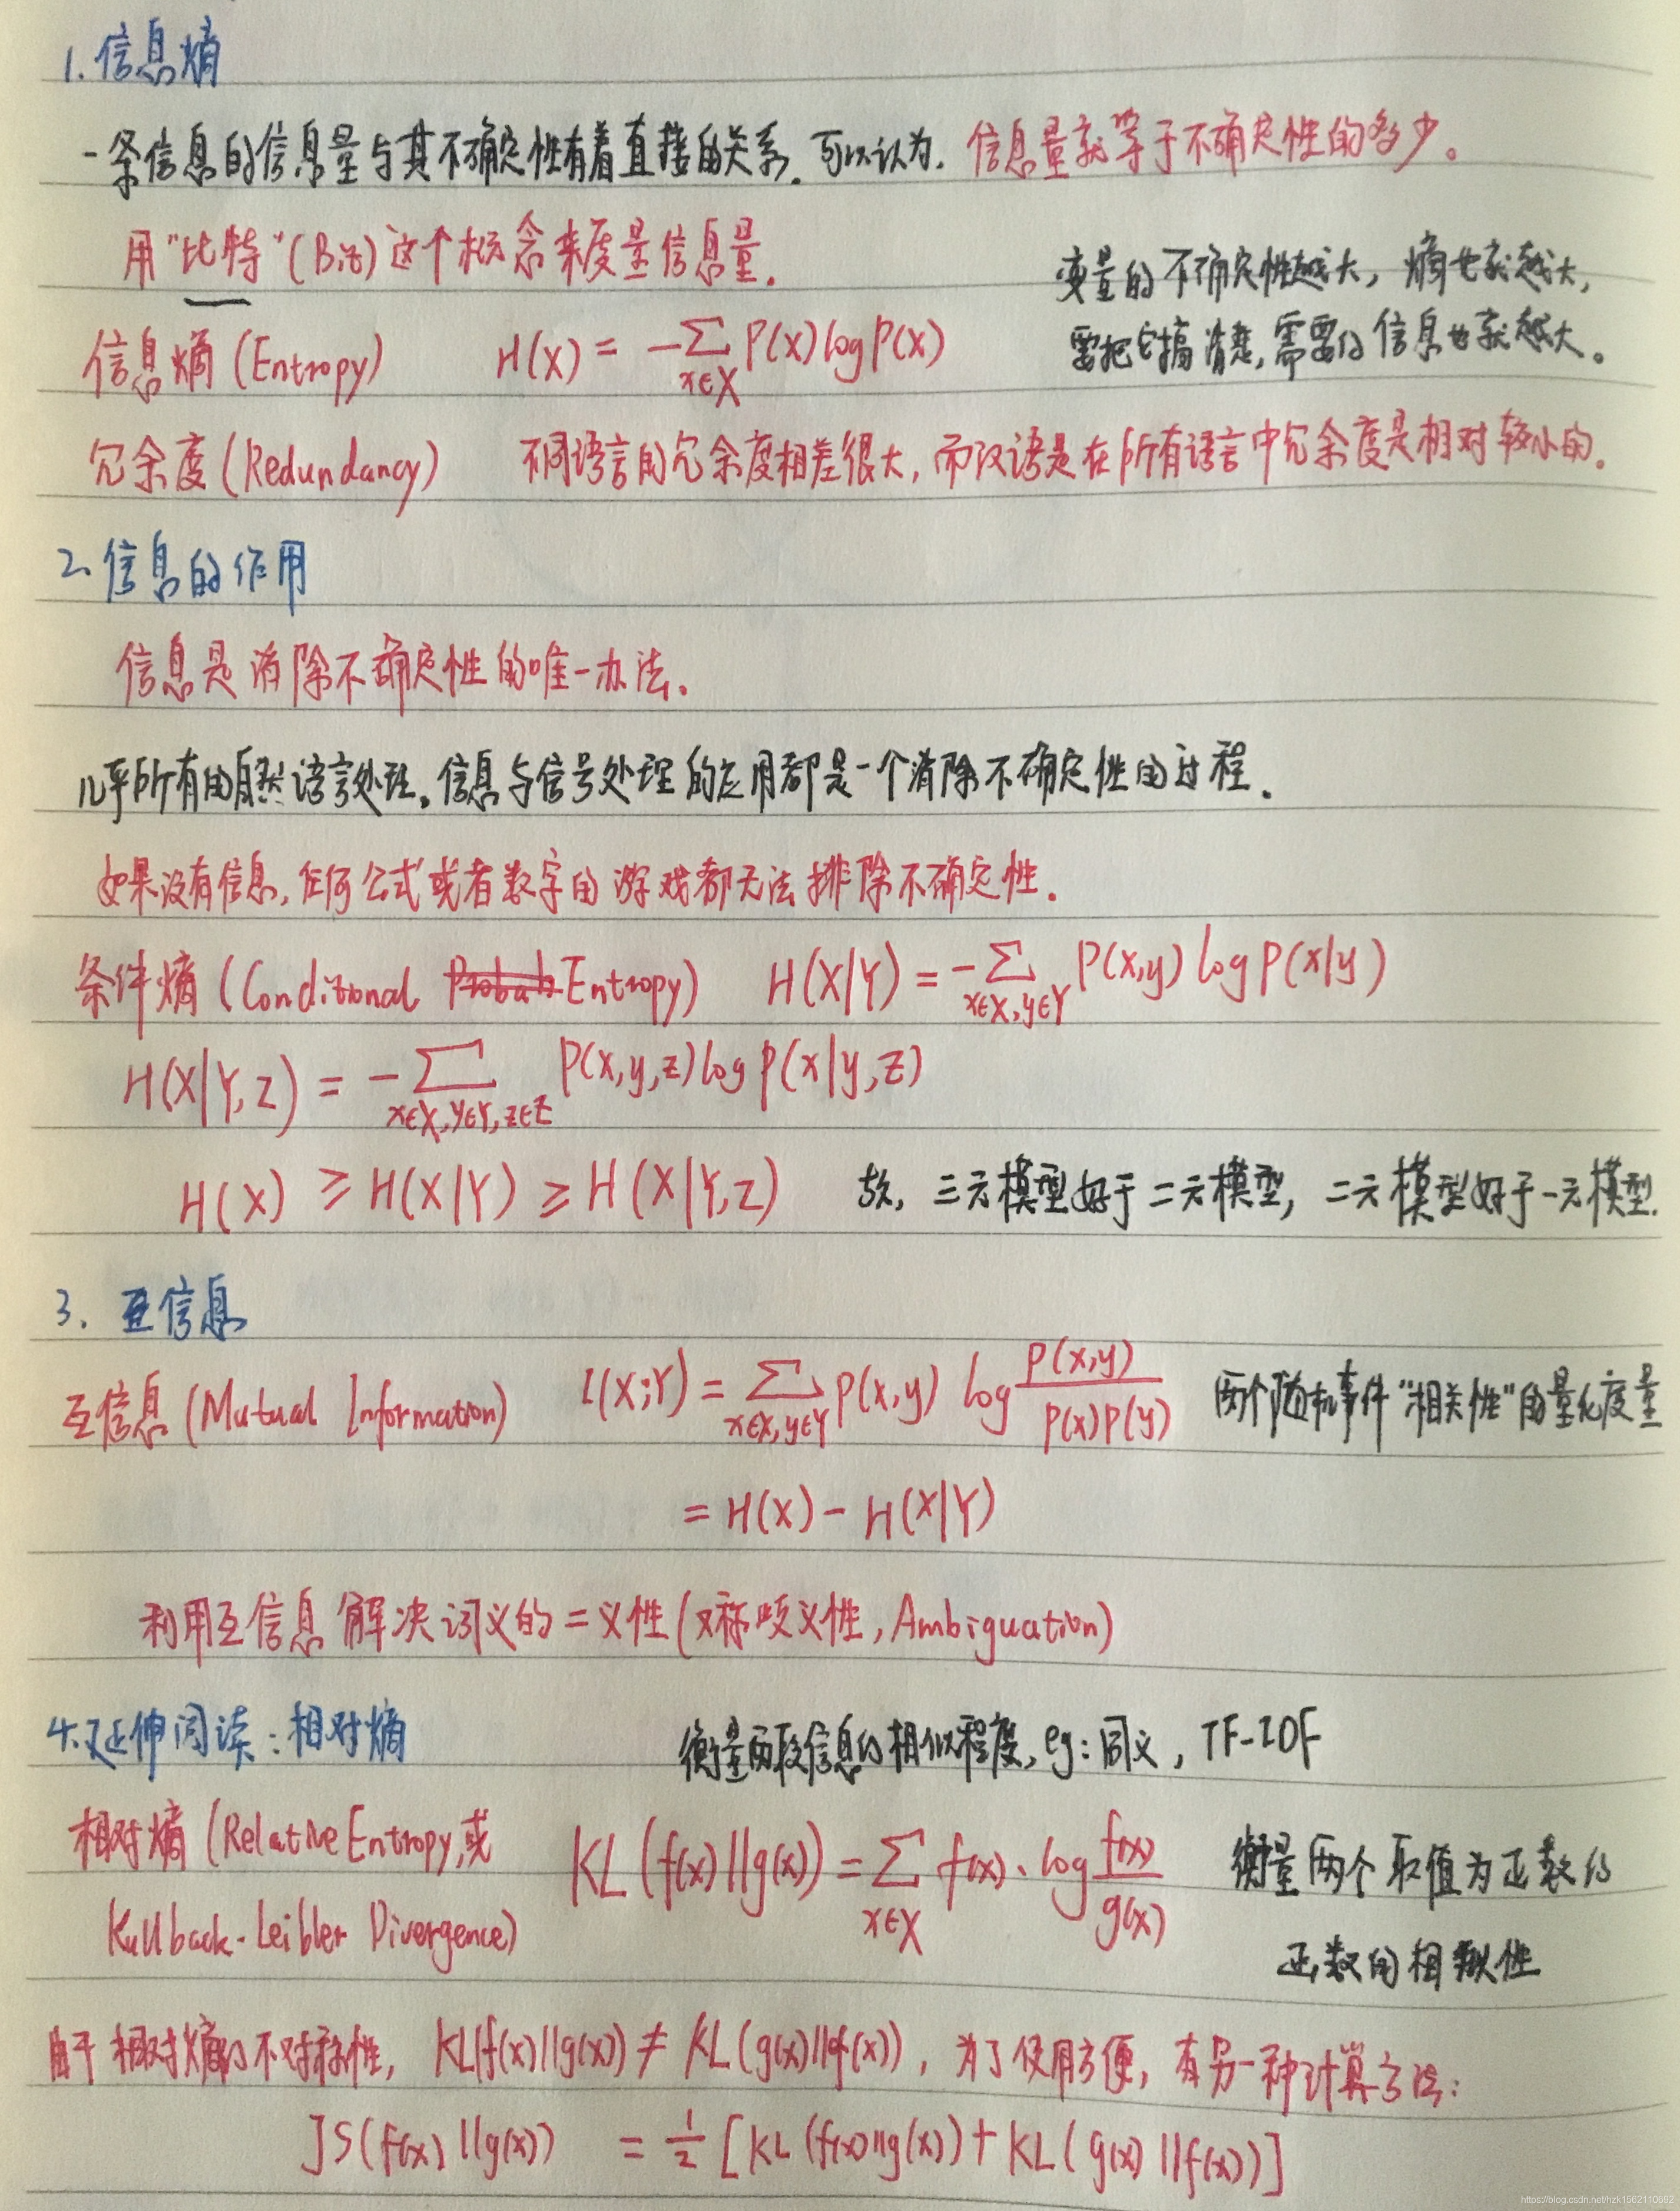 1. 信息熵
一条信息的信息量与其不确定性有着直接的关系. 可以认为. 信息量就等于不确定性的多少。
用"比特"(Bit)这个概念来度量信息量.
变量的不确定性越大, 熵也就越大,
要把它搞清楚, 需要的信息也就越大。
信息熵 (Entropy) H(X) = -∑_{x∈X} P(x) log P(x)
冗余度 (Redundancy) 不同语言的冗余度相差很大, 而汉语是在所有语言中冗余度是相对较小的.
2. 信息的作用
信息是消除不确定性的唯一办法.
几乎所有的自然语言处理. 信息与信号处理的应用都是一个消除不确定性的过程.
如果没有信息, 任何公式或者数字的游戏都无法排除不确定性.
条件熵 (Conditional Entropy) H(X|Y) = -∑_{x∈X, y∈Y} P(x,y) log P(x|y)
H(X|Y,Z) = -∑_{x∈X, y∈Y, z∈Z} P(x,y,z) log P(x|y,z)
H(X) ≥ H(X|Y) ≥ H(X|Y,Z) 故, 三元模型好于二元模型, 二元模型好于一元模型.
3. 互信息
互信息 (Mutual Information) I(X;Y) = ∑_{x∈X, y∈Y} P(x,y) log P(x,y) / P(x)P(y) 两个随机事件"相关性"的量化度量
= H(X) - H(X|Y)
利用互信息解决词义的二义性 (又称歧义性, Ambiguation)
4. 延伸阅读: 相对熵 衡量两段信息的相似程度, eg: 同义, TF-IDF
相对熵 (Relative Entropy, 或
Kullback-Leibler Divergence)
KL (f(x) || g(x)) = ∑_{x∈X} f(x) · log f(x) / g(x)
衡量两个取值为正数的
函数的相似性
由于相对熵的不对称性, KL(f(x)||g(x)) ≠ KL(g(x)||f(x)), 为了使用方便, 有另一种计算方法:
JS(f(x) || g(x)) = 1/2 [KL (f(x)||g(x)) + KL (g(x) || f(x))]
https://blog.csdn.net/hzk1562110692